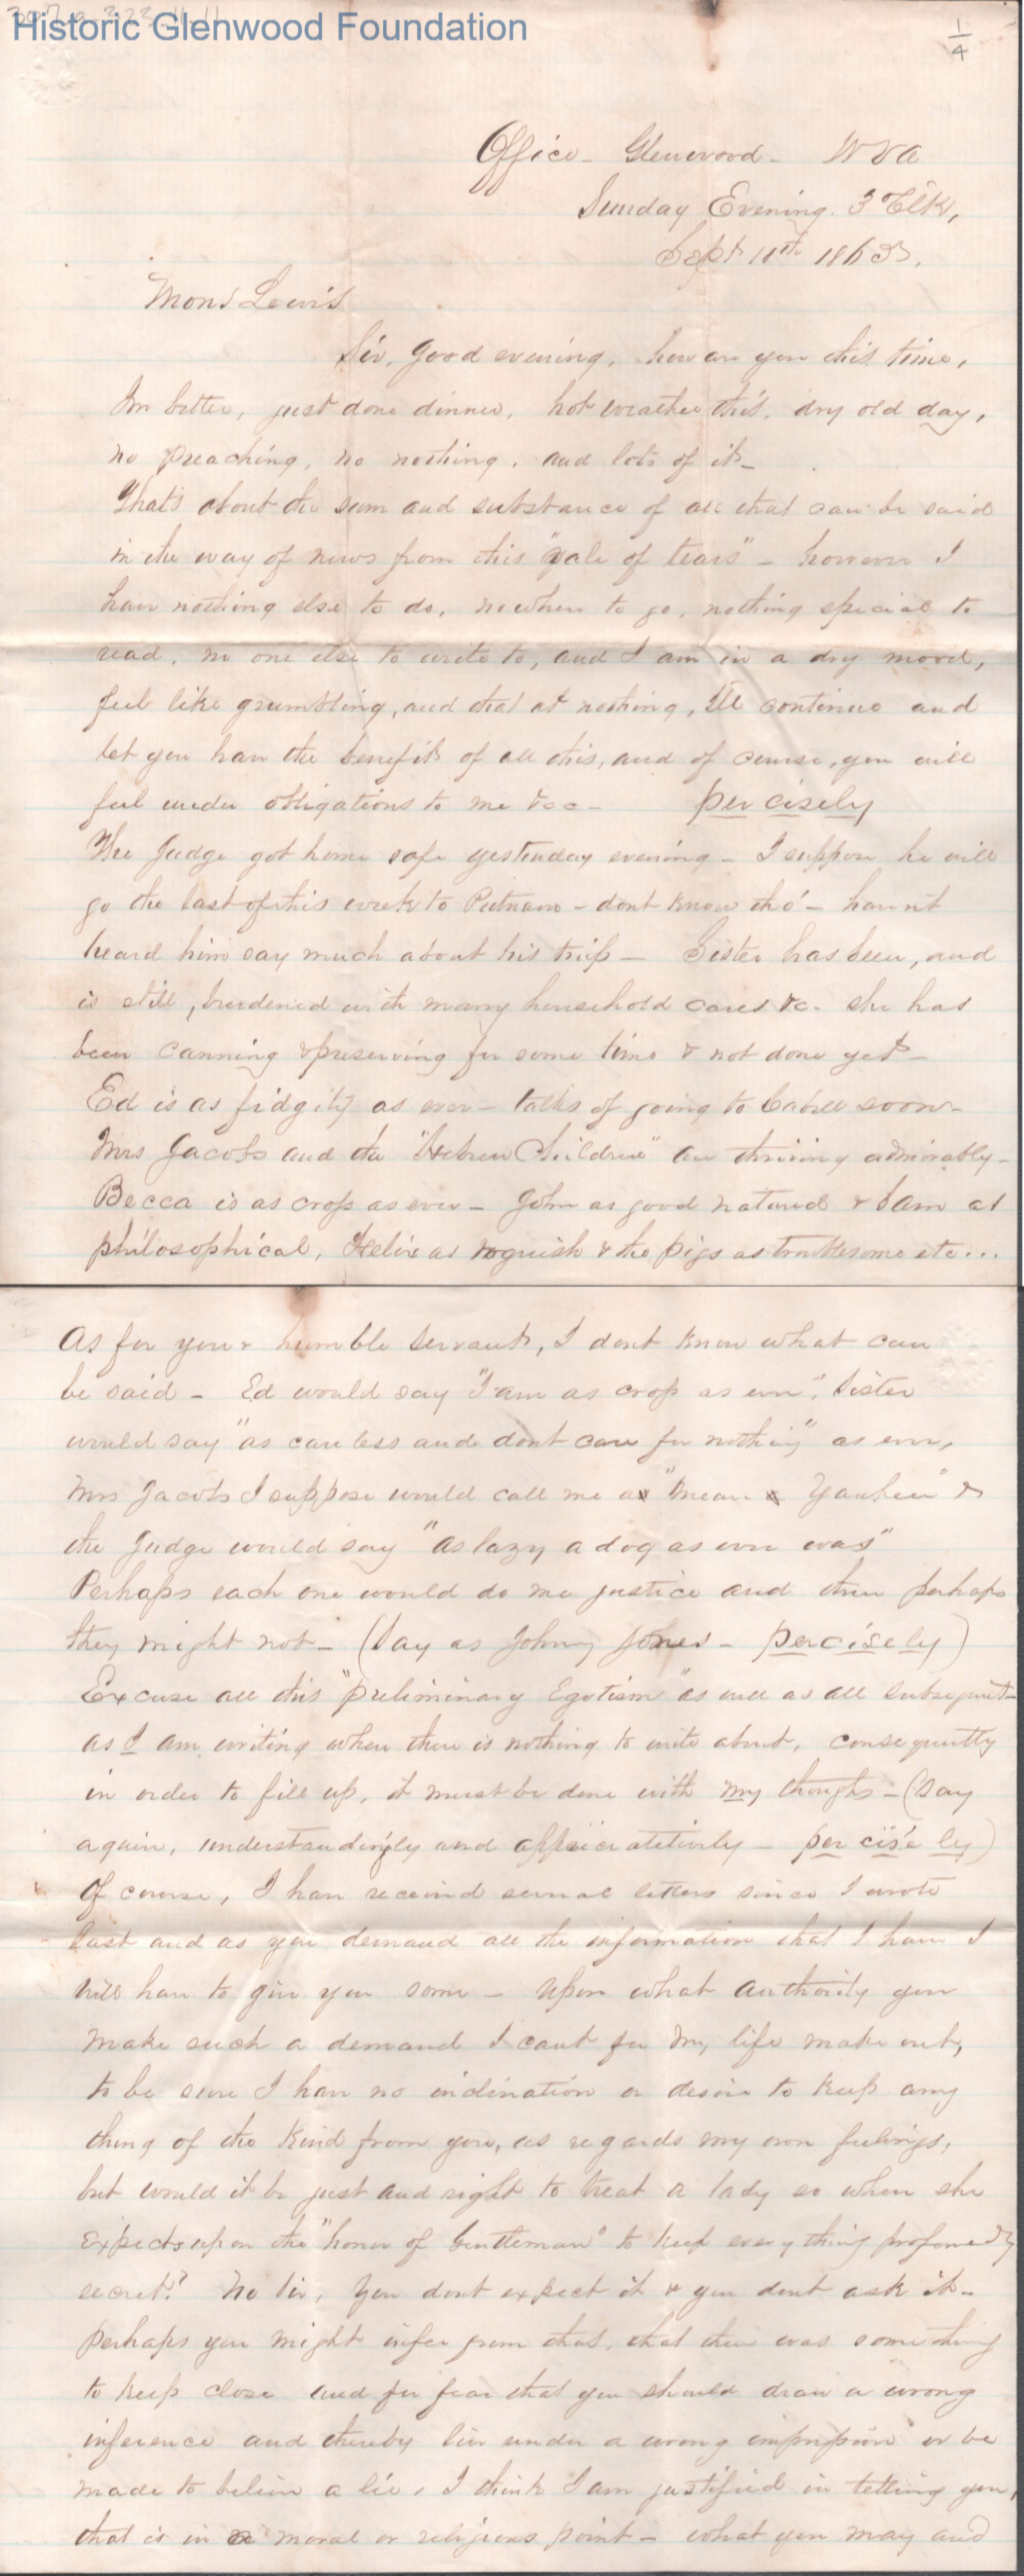 Historic Glenwood Foundation
1/4
Office - Glenwood - W Va
Sunday Evening. 3 Clk,
Sept 11th 186
Mons Lewis
Sir, Good evening, how are you this time,
Im better, just done dinner, hot weather this, dry old day,
no preaching, no nothing, and lots of it -
That's about the sum and substance of all that can be said
in the way of news from this "vale of tears" - however I
have nothing else to do, no where to go, nothing special to
read, no one else to write to, and I am in a dry mood,
feel like grumbling, and that at nothing, Ill continue and
let you have the benefit of all this, and of course, you will
feel under obligations to me &cc - percisely
The Judge got home safe yesterday evening - I suppose he will
go the last of this week to Putnam - dont know tho' - haven't
heard him say much about his trip - Sister has been, and
is still, burdened with many household cares &c. she has
been canning & preserving for some time & not done yet -
Ed is as fidgity as ever - talks of going to Cabell soon -
Mrs Jacobs and the "Hebrew Children" are thriving admirably -
Becca is as cross as ever - John as good natured & Sam as
philosophical, as roguish & the pigs as troublesome etc...
As for your humble servant, I dont know what can
be said - Ed would say "I am as cross as ever", Sister
would say "as careless and dont care for nothing" as ever,
Mrs Jacobs I suppose would call me a "mean Yankee" &
the Judge would say "as lazy a dog as ever was"
Perhaps each one would do me justice and then perhaps
they might not - (Say as Johny Jones - percisely)
Excuse all this "preliminary Egotism" as well as all subsequent -
as I am writing when there is nothing to write about, consequently
in order to fill up, it must be done with my thoughts - (Say
again, understandingly and appreciatively - percisely)
Of course, I have received several letters since I wrote
last and as you demand all the information that I have I
will have to give you some - Upon what authority you
make such a demand I cant for my life make out,
to be sure I have no inclination or desire to keep any
thing of the kind from you, as regards my own feelings,
but would it be just and right to treat a lady so when she
expects upon the "honor of Gentleman" to keep every thing profoundly
secret? No Sir, You dont expect it & you dont ask it -
Perhaps you might infer from that, that there was something
to keep close and for fear that you should draw a wrong
inference and thereby live under a wrong impression or be
made to believe a lie, I think I am justified in telling you,
that is in a moral or religious point - what you may and